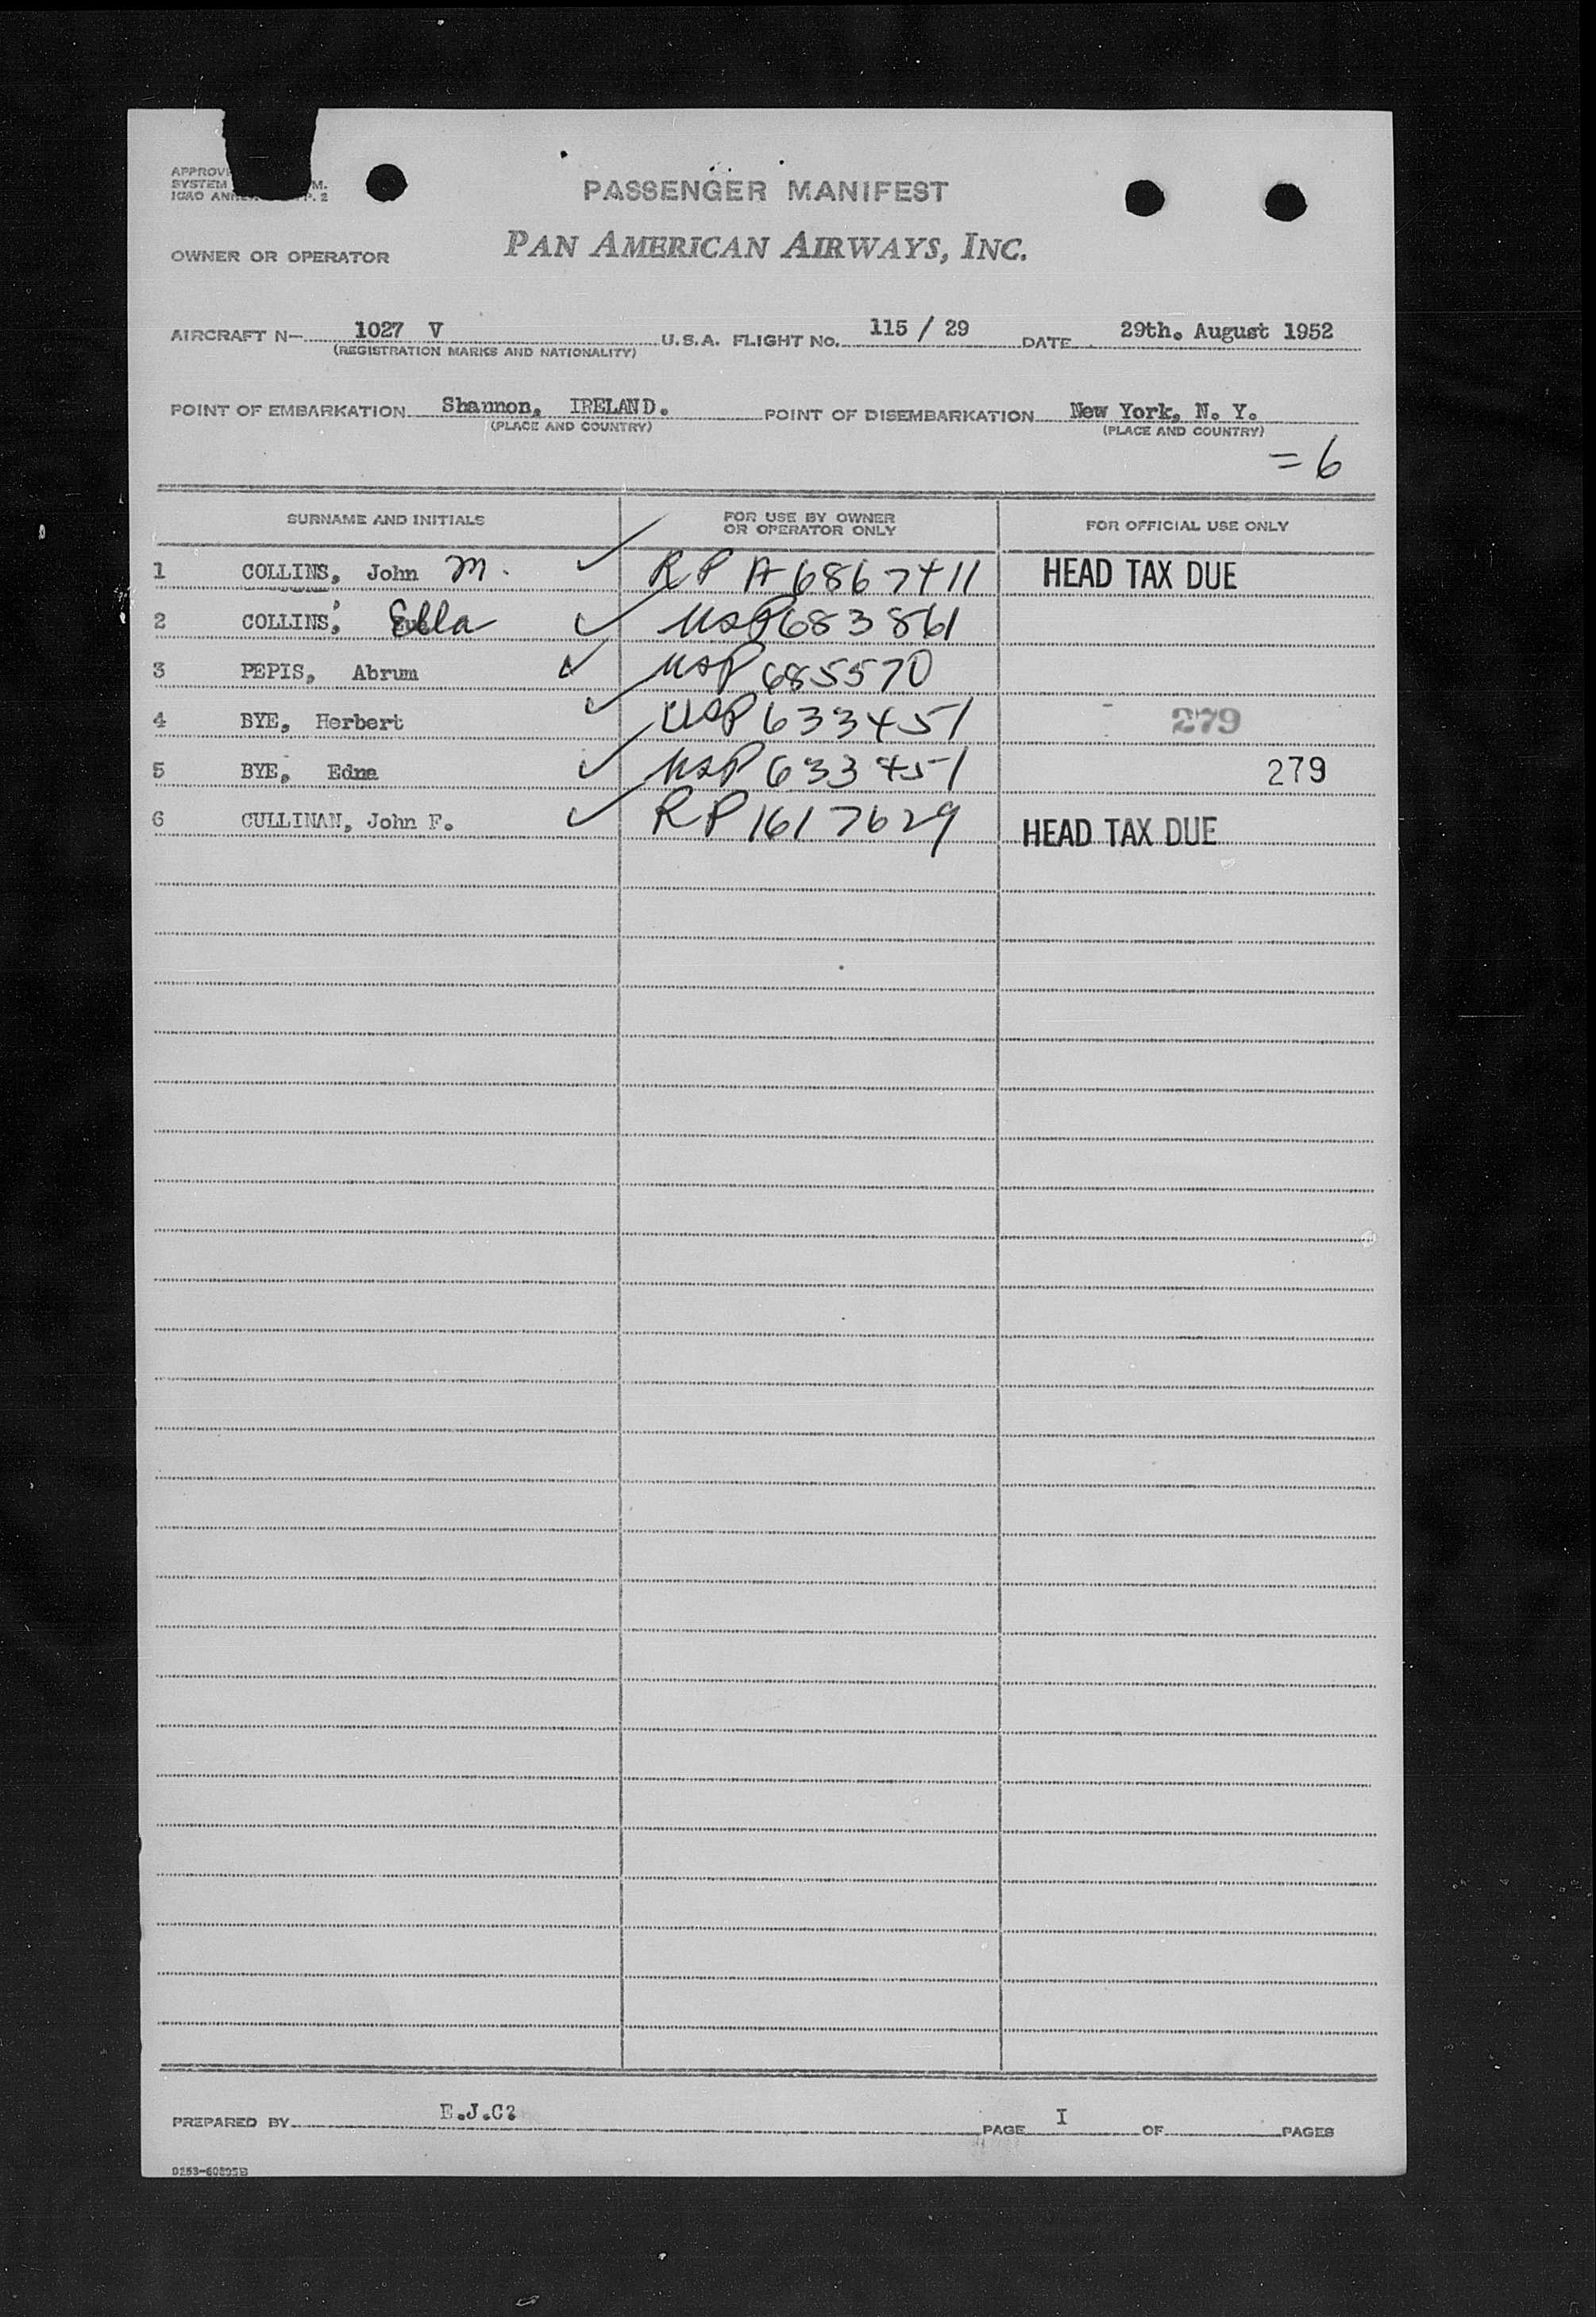 PASSENGER MANIFEST
OWNER OR OPERATOR PAN AMERICAN AIRWAYS, INC.
AIRCRAFT N— 1027 V U.S.A. FLIGHT NO. 115 / 29 DATE 29th. August 1952
(REGISTRATION MARKS AND NATIONALITY)
POINT OF EMBARKATION Shannon, IRELAND. POINT OF DISEMBARKATION New York, N. Y.
(PLACE AND COUNTRY) (PLACE AND COUNTRY)
= 6
SURNAME AND INITIALS FOR USE BY OWNER OR OPERATOR ONLY FOR OFFICIAL USE ONLY
1 COLLINS, John M. RP A6867411 HEAD TAX DUE
2 COLLINS, Ella USP683861
3 PEPIS, Abrum USP 685570
4 BYE, Herbert USP 633451 279
5 BYE, Edna USP 633451 279
6 CULLINAN, John F. RP 1617629 HEAD TAX DUE
PREPARED BY E.J.C? PAGE I OF PAGES